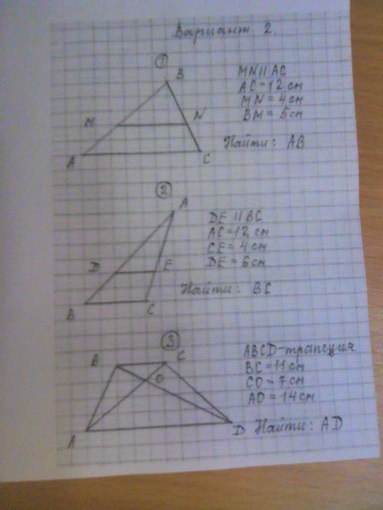 Вариант 2.
①
B
MN || AC
AC = 12 см
MN = 4 см
BM = 6 см
M N
Найти: AB
A C
②
A
DE || BC
AC = 12 см
CE = 4 см
DE = 6 см
D E
Найти: BC
B C
③
ABCD - трапеция
B C
BC = 11 см
O
CO = 7 см
AO = 14 см
A D
Найти: AD